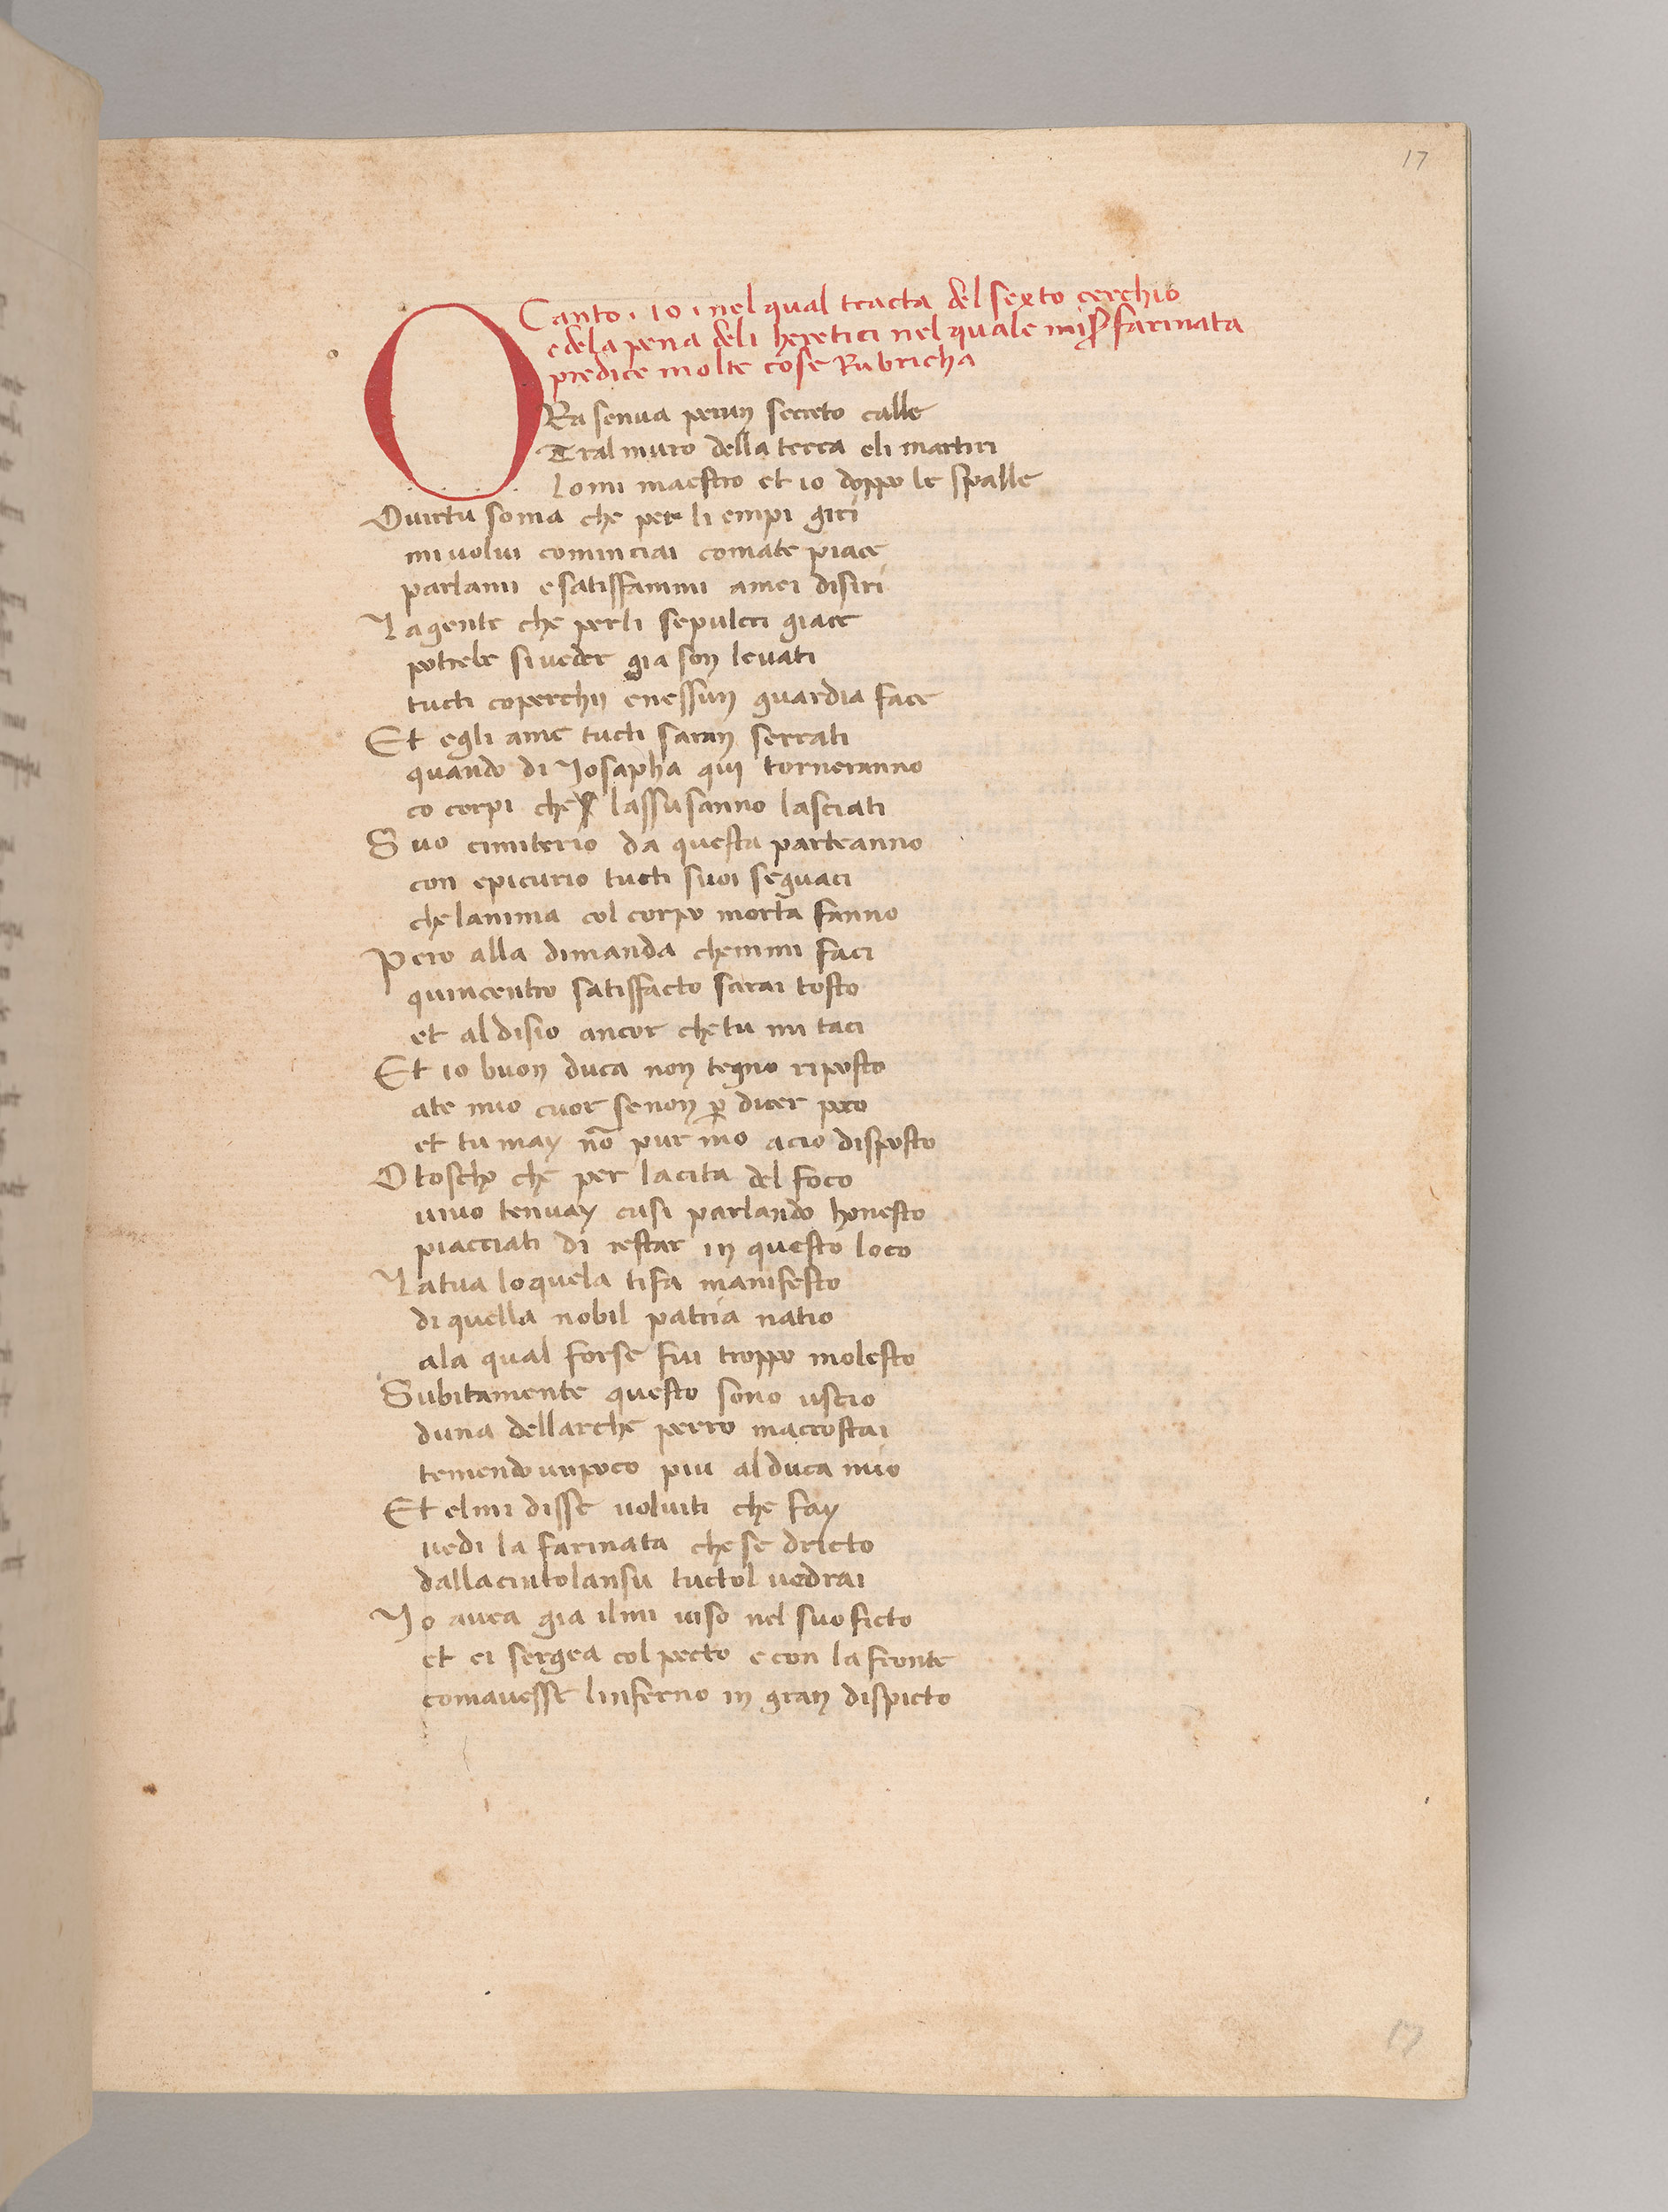 17
Canto · 10 · nel qual tracta del sexto cerchio
e dela pena deli heretici nel quale mis̄ farinata
predice molte cose Rubricha
ORa senua perun secreto calle
Tral muro della terra eli martiri
lo mi maestro et io doppo le spalle
O uirtu soma che per li empi giri
mi uolui cominciai comate piace
parlami e satisffammi amei disiri
La gente che perli sepulcri giace
potrebe si ueder gia son leuati
tucti coperchii enessun guardia face
Et egli ame tucti saran serrati
quando di Iosapha qui torneranno
co corpi che lassusanno lasciati
Suo cimiterio da questa parteanno
con epicurio tucti suoi seguaci
che lanima col corpo morta fanno
Pero alla dimanda chemmi faci
quincentro satisffacto sarai tosto
et al disio ancor che tu mi taci
Et io buon duca non tegno riposto
ate mio cuor se non p̄ dicer poco
et tu may nō pur mo acio disposto
O toscho che per lacita del foco
uiuo tenuay cusi parlando honesto
piacciati di restar in questo loco
La tua loquela ti fa manifesto
di quella nobil patria natio
ala qual forse fui troppo molesto
Subitamente questo sono uscio
duna dellarche perro maccostai
temendo un poco piu al duca mio
Et elmi disse uoluiti che fay
uedi la farinata che se dricto
dallacintolansu tuctol uedrai
Io auea gia il mi uiso nel suo ficto
et ei sergea col pecto e con la fronte
comauesse linferno in gran dispicto
17